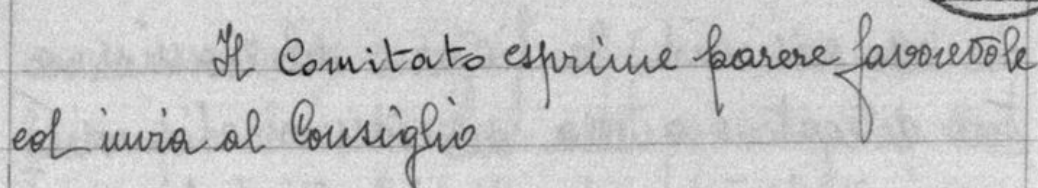 Il Comitato esprime parere favorevole
ed invia al Consiglio